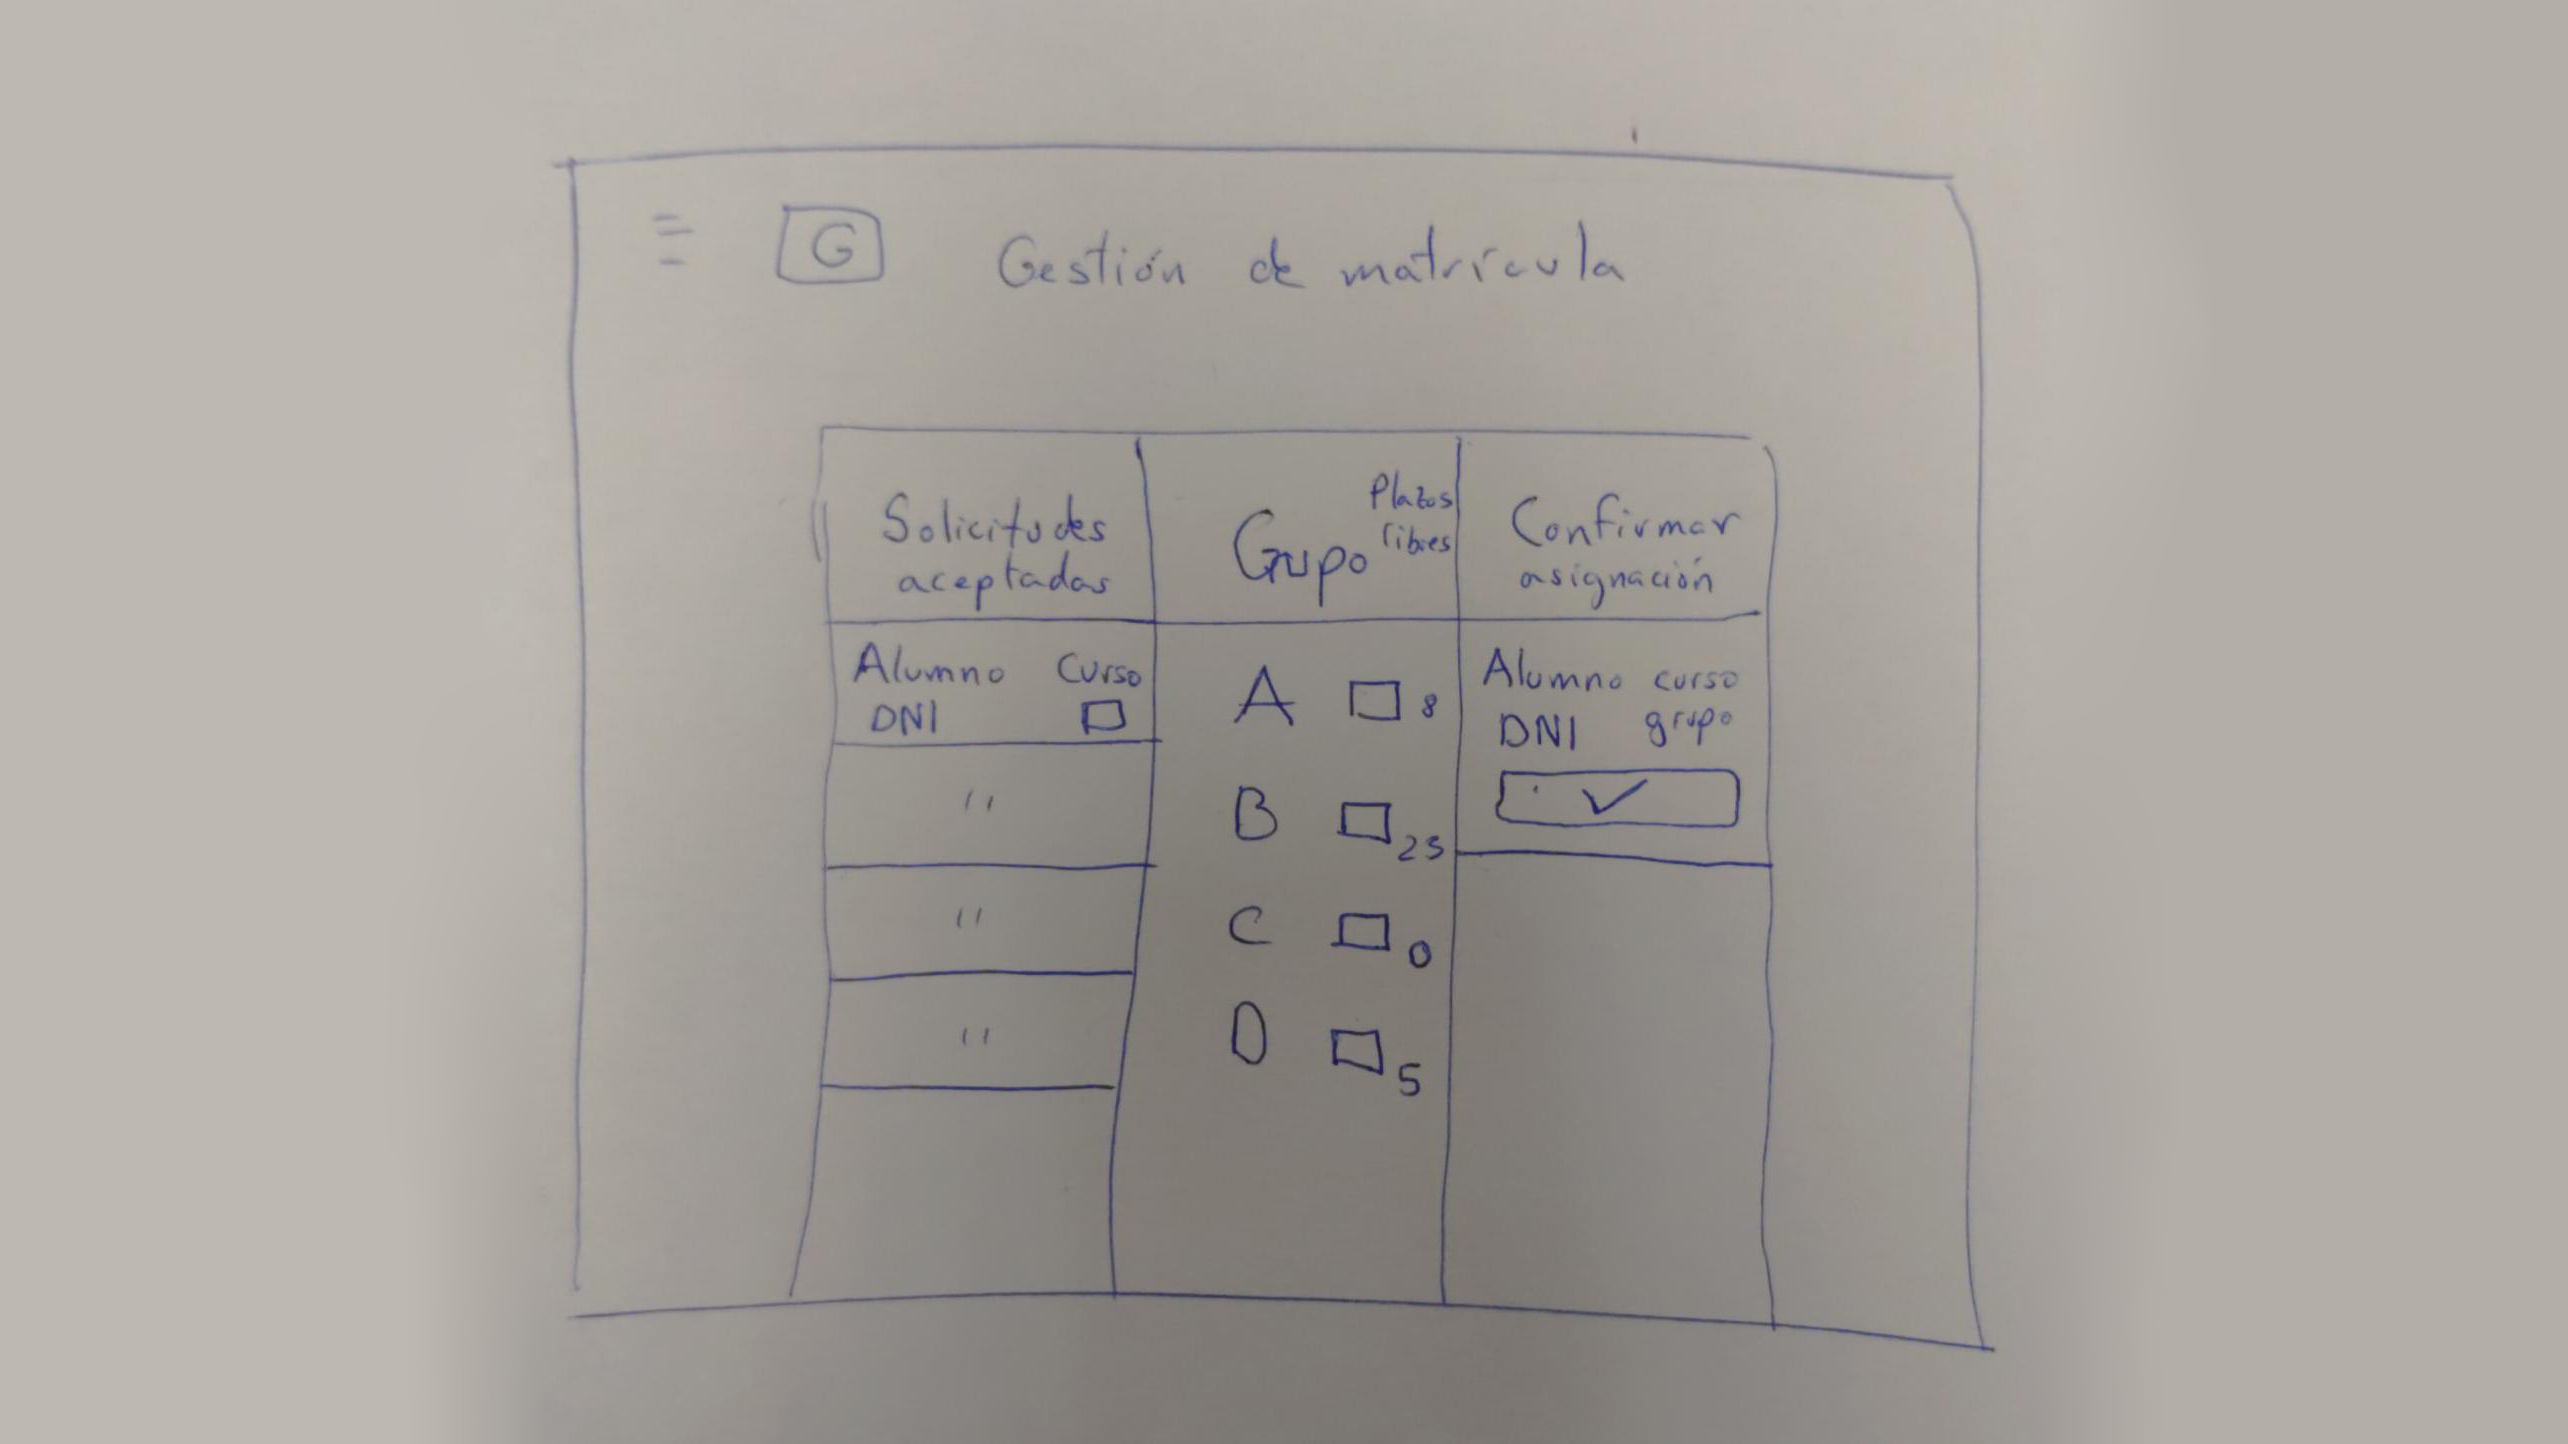 G Gestión de matrícula
Solicitudes
aceptadas
Grupo
Plazas
libres
Confirmar
asignación
Alumno Curso
DNI
"
"
"
A 8
B 25
C 0
D 5
Alumno curso
DNI grupo
✓